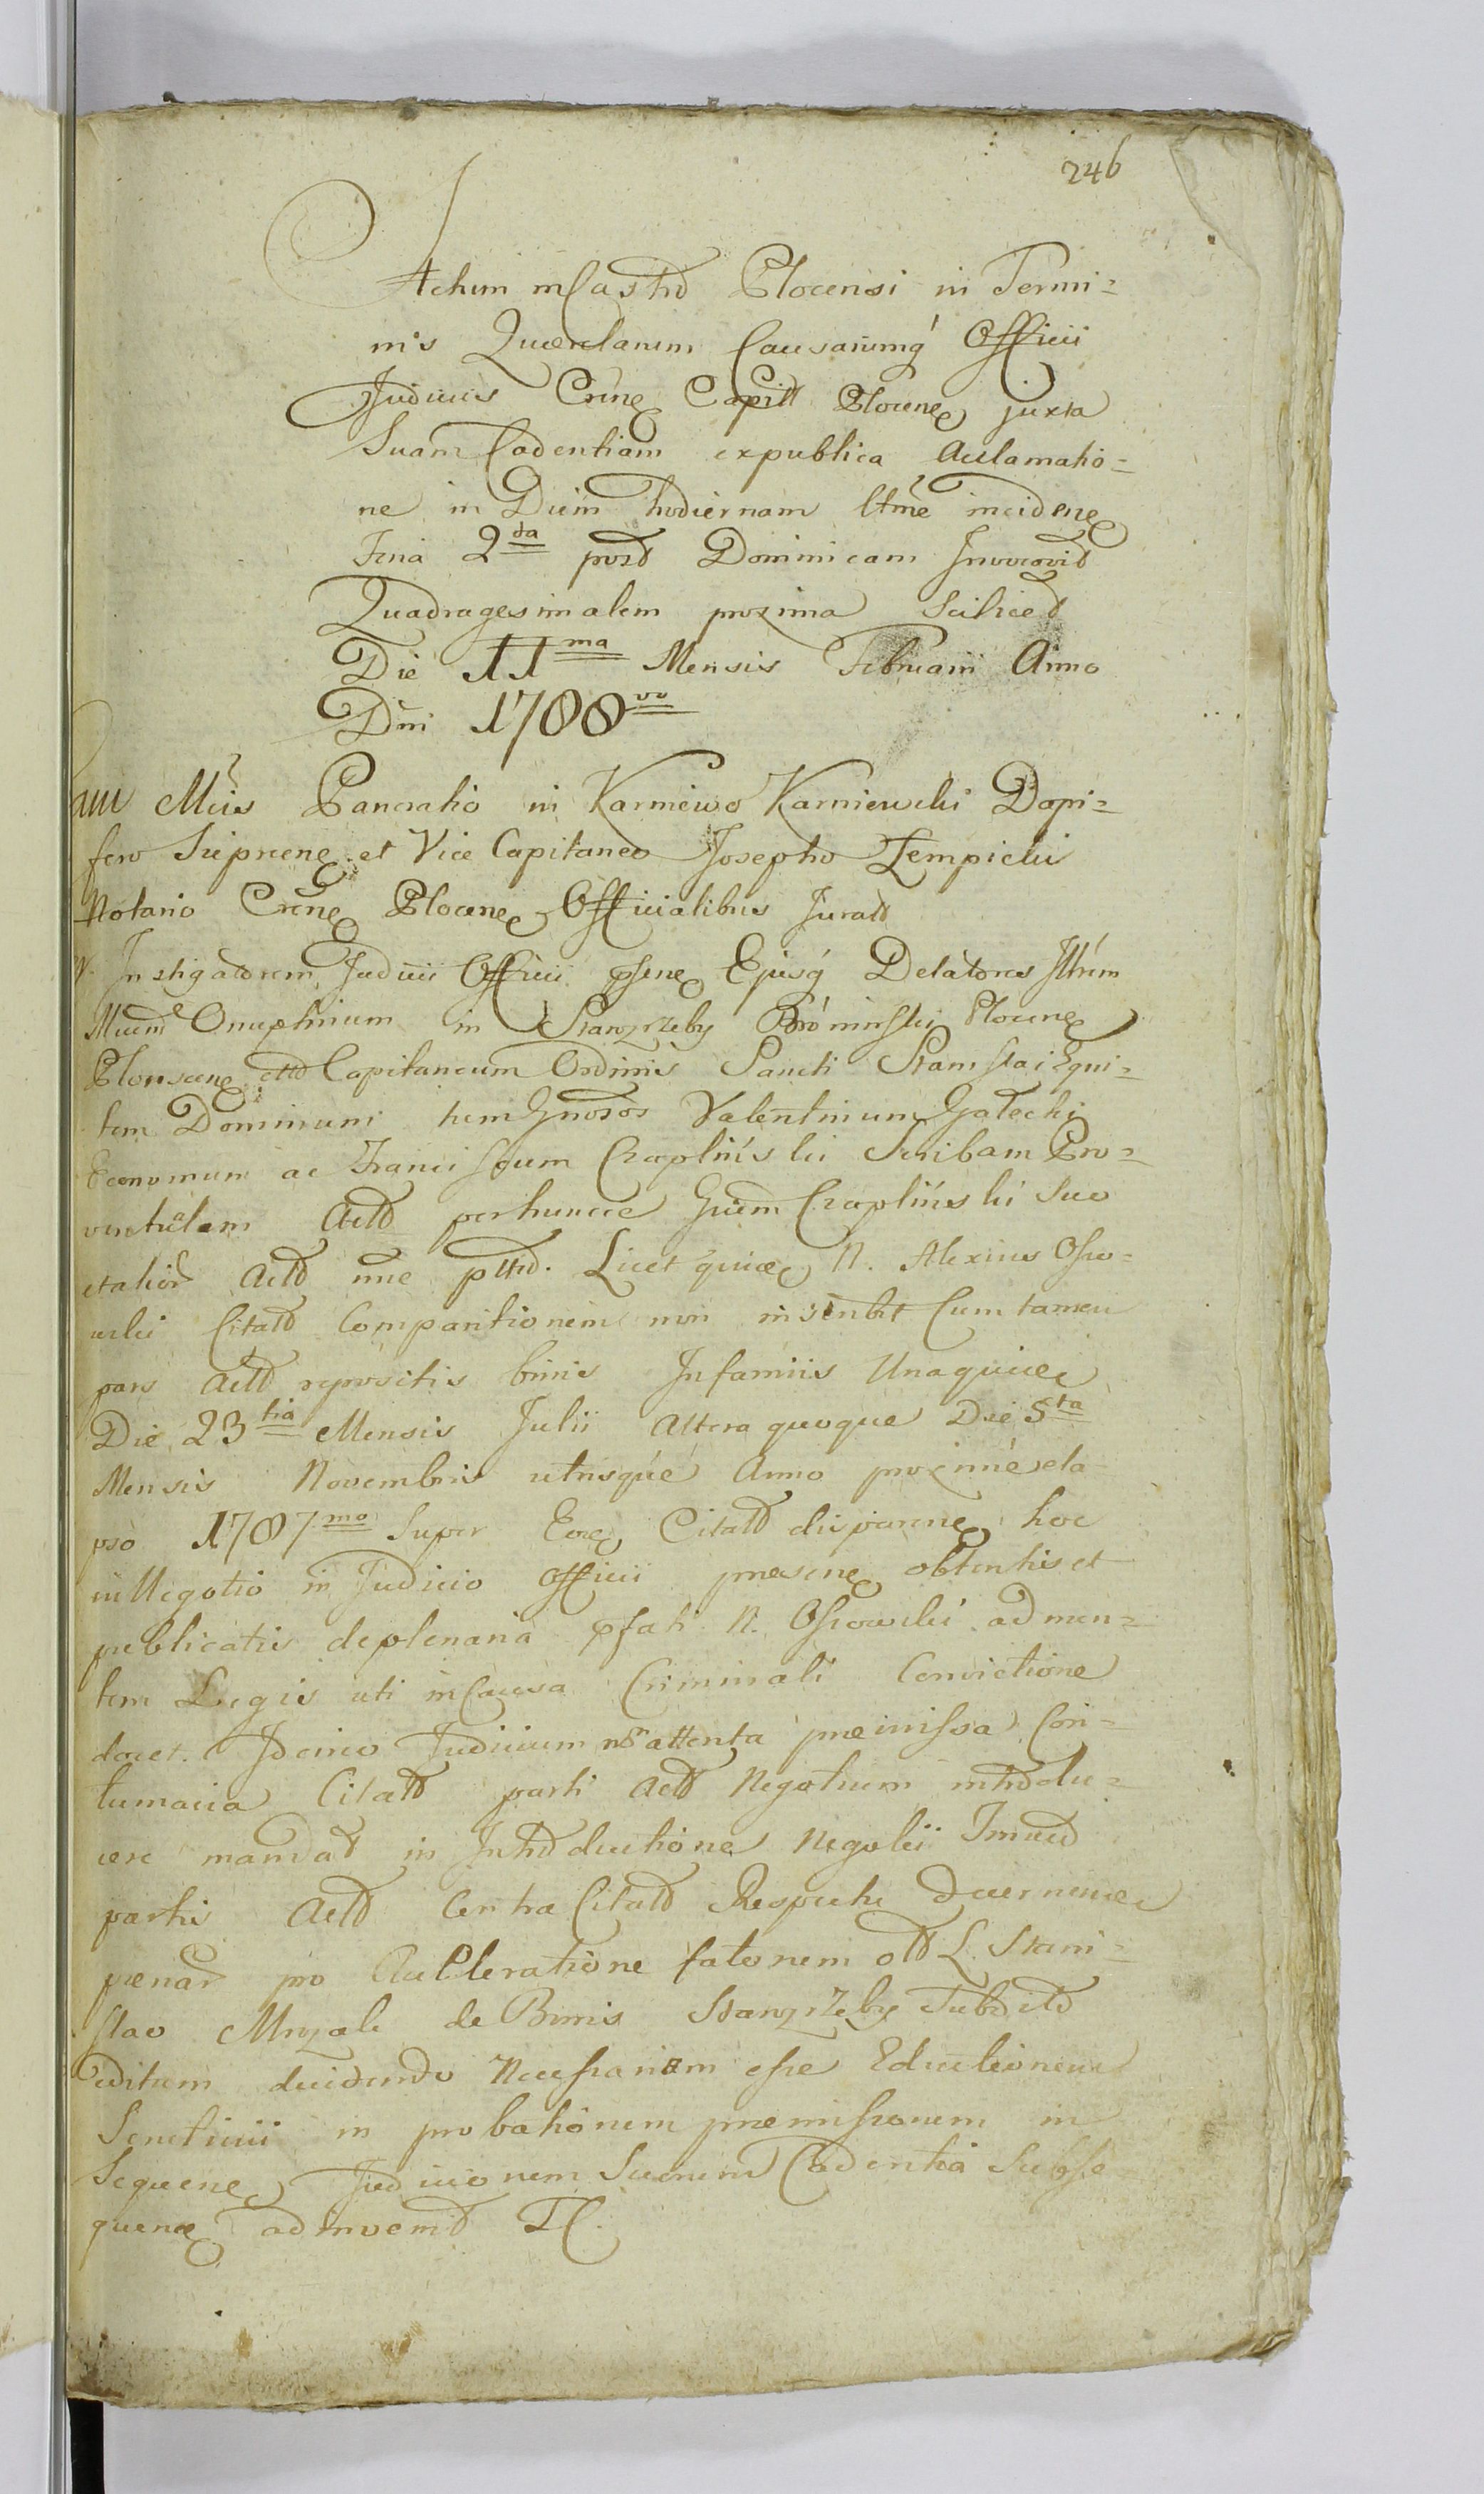 246
Actum in Castro Plocensi in Termi=
nis Querelarum Causarumq́ Officii
Judiciis Crimę Capitt Plocenę juxta
Suam Cadentiam expublica Acclamatio=
ne in Diem hodiernam ltme incidenę
Feria 2da post Dominicam Invocavit
Quadragesimalem proxima Scilicet
Die 11ma Mensis Februarii Anno
Dni 1788vo
Mcis Pancratio in Karniewo Karniewski Dapi=
fero Sieprcenę et Vice Capitaneo Josepho Zempicki
Notario Crenę Plocenę Officialibus Juratt
Instigatorem Judicii Officii psenę Ejusq́ Delatores Illrem
Mcum Onuphrium in Starozrzeby Brominski Plocenę
Plonscenę ettd Capitaneum Ordinis Sancti Stanislai Equi=
tem Dominum tum Gnosos Valentinum Galecki
Economum ac Franciscum Czaplinski Scribam Pro=
ventualem Actt perhuncce Gnem Czaplinski suo
etalior Actt nne pttt. Licet quidę N. Alexius Osso=
wski Citatt Comparitionem non inscribit Cum tamen
pars Actt repositis binis Infamiis Una quidę
Die 23tia Mensis Julii altera quoque Die 5ta
Mensis Novembris utrisque Anno proxime ela
pso 1787mo Super Eoę Citatt disparenę hoc
in Negotio in Judicio Officii praesenę obtentis et
publicatis deplenaria pfati N. Ossowski ad men=
tem Legis uti in Causa Criminali Convictione
docet. Idcirco Judicium nr attenta praemissa Con=
tumacia Citatt parti Actt Negotium introdu=
cere mandat in Introductione Negotii
partis Actt Contra Citatt Respectu decernendę
paenar pro
slao Mrozale de Bonis Starozrzeby Subditt
editum ducendo Necessariam esse Eductionem
Scrutinii in probationem praemissorum in
Sequenę Judiciorum Suorum Cadentia Subse
quenę adinvenit IC.